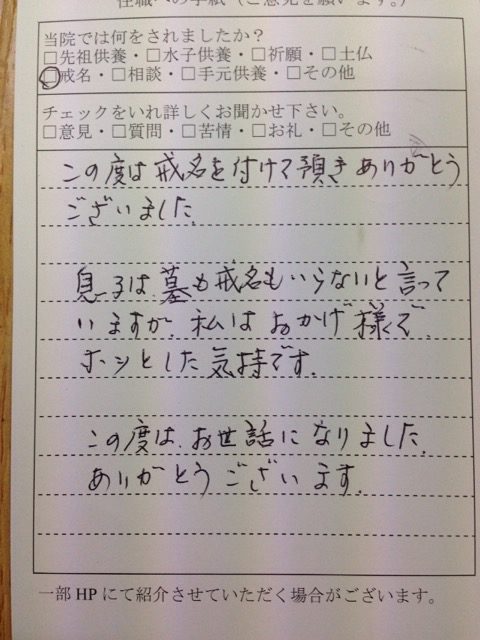 住職への手紙(ご意見を願います。)
当院では何をされましたか?
□先祖供養・□水子供養・□祈願・□土仏
□戒名・□相談・□手元供養・□その他
チェックをいれ詳しくお聞かせ下さい。
□意見・□質問・□苦情・□お礼・□その他
この度は戒名を付けて頂きありがとう
ございました.
息子は墓も戒名もいらないと言って
いますが.私はおかげ様で.
ホッとした気持です.
この度は.お世話になりました.
ありがとうございます.
一部HPにて紹介させていただく場合がございます。